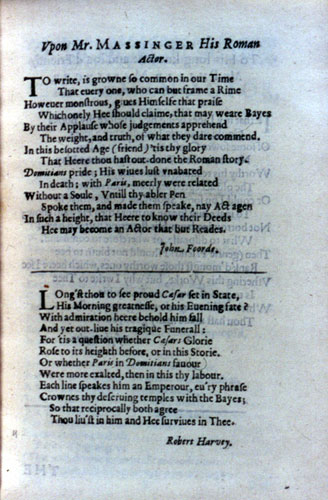 Vpon Mr. MASSINGER His Roman
Actor.
TO write, is growne so common in our Time
That euery one, who can but frame a Rime
However monstrous, giues Himselfe that praise
Which onely Hee should claime, that may weare Bayes
By their Applause whose judgements apprehend
The weight, and truth, of what they dare commend.
In this besotted Age (friend) 'tis thy glory
That Heere thou hast out-done the Roman story.
Domitians pride; His wiues lust vnabated
In death; with Paris, meerly were related
Without a Soule, Vntill thy abler Pen
Spoke them, and made them speake, nay Act agen
In such a height, that Heere to know their Deeds
Hee may become an Actor that but Reades.
John Foorde.
LOng'st thou to see proud Cæsar set in State,
His Morning greatnesse, or his Euening fate?
With admiration heere behold him fall
And yet out-liue his tragique Funerall:
For 'tis a question whether Cæsars Glorie
Rose to its heighth before, or in this Storie.
Or whether Paris in Domitians fauour
Were more exalted, then in this thy labour.
Each line speakes him an Emperour, eu'ry phrase
Crownes thy deseruing temples with the Bayes;
So that reciprocally both agree
Thou liu'st in him and Hee surviues in Thee.
Robert Harvey.